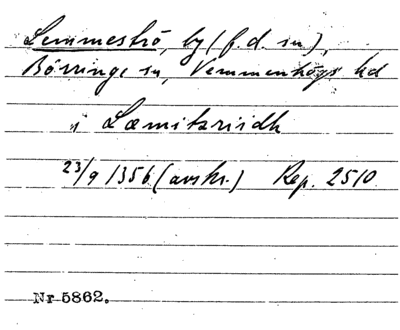 Lemmeströ, by (f.d. sn),
Börringe sn, Vemmenhögs hd
i Læmitzriidh
23/9 1356 (avskr.) Rep. 2510
Nr 5862.